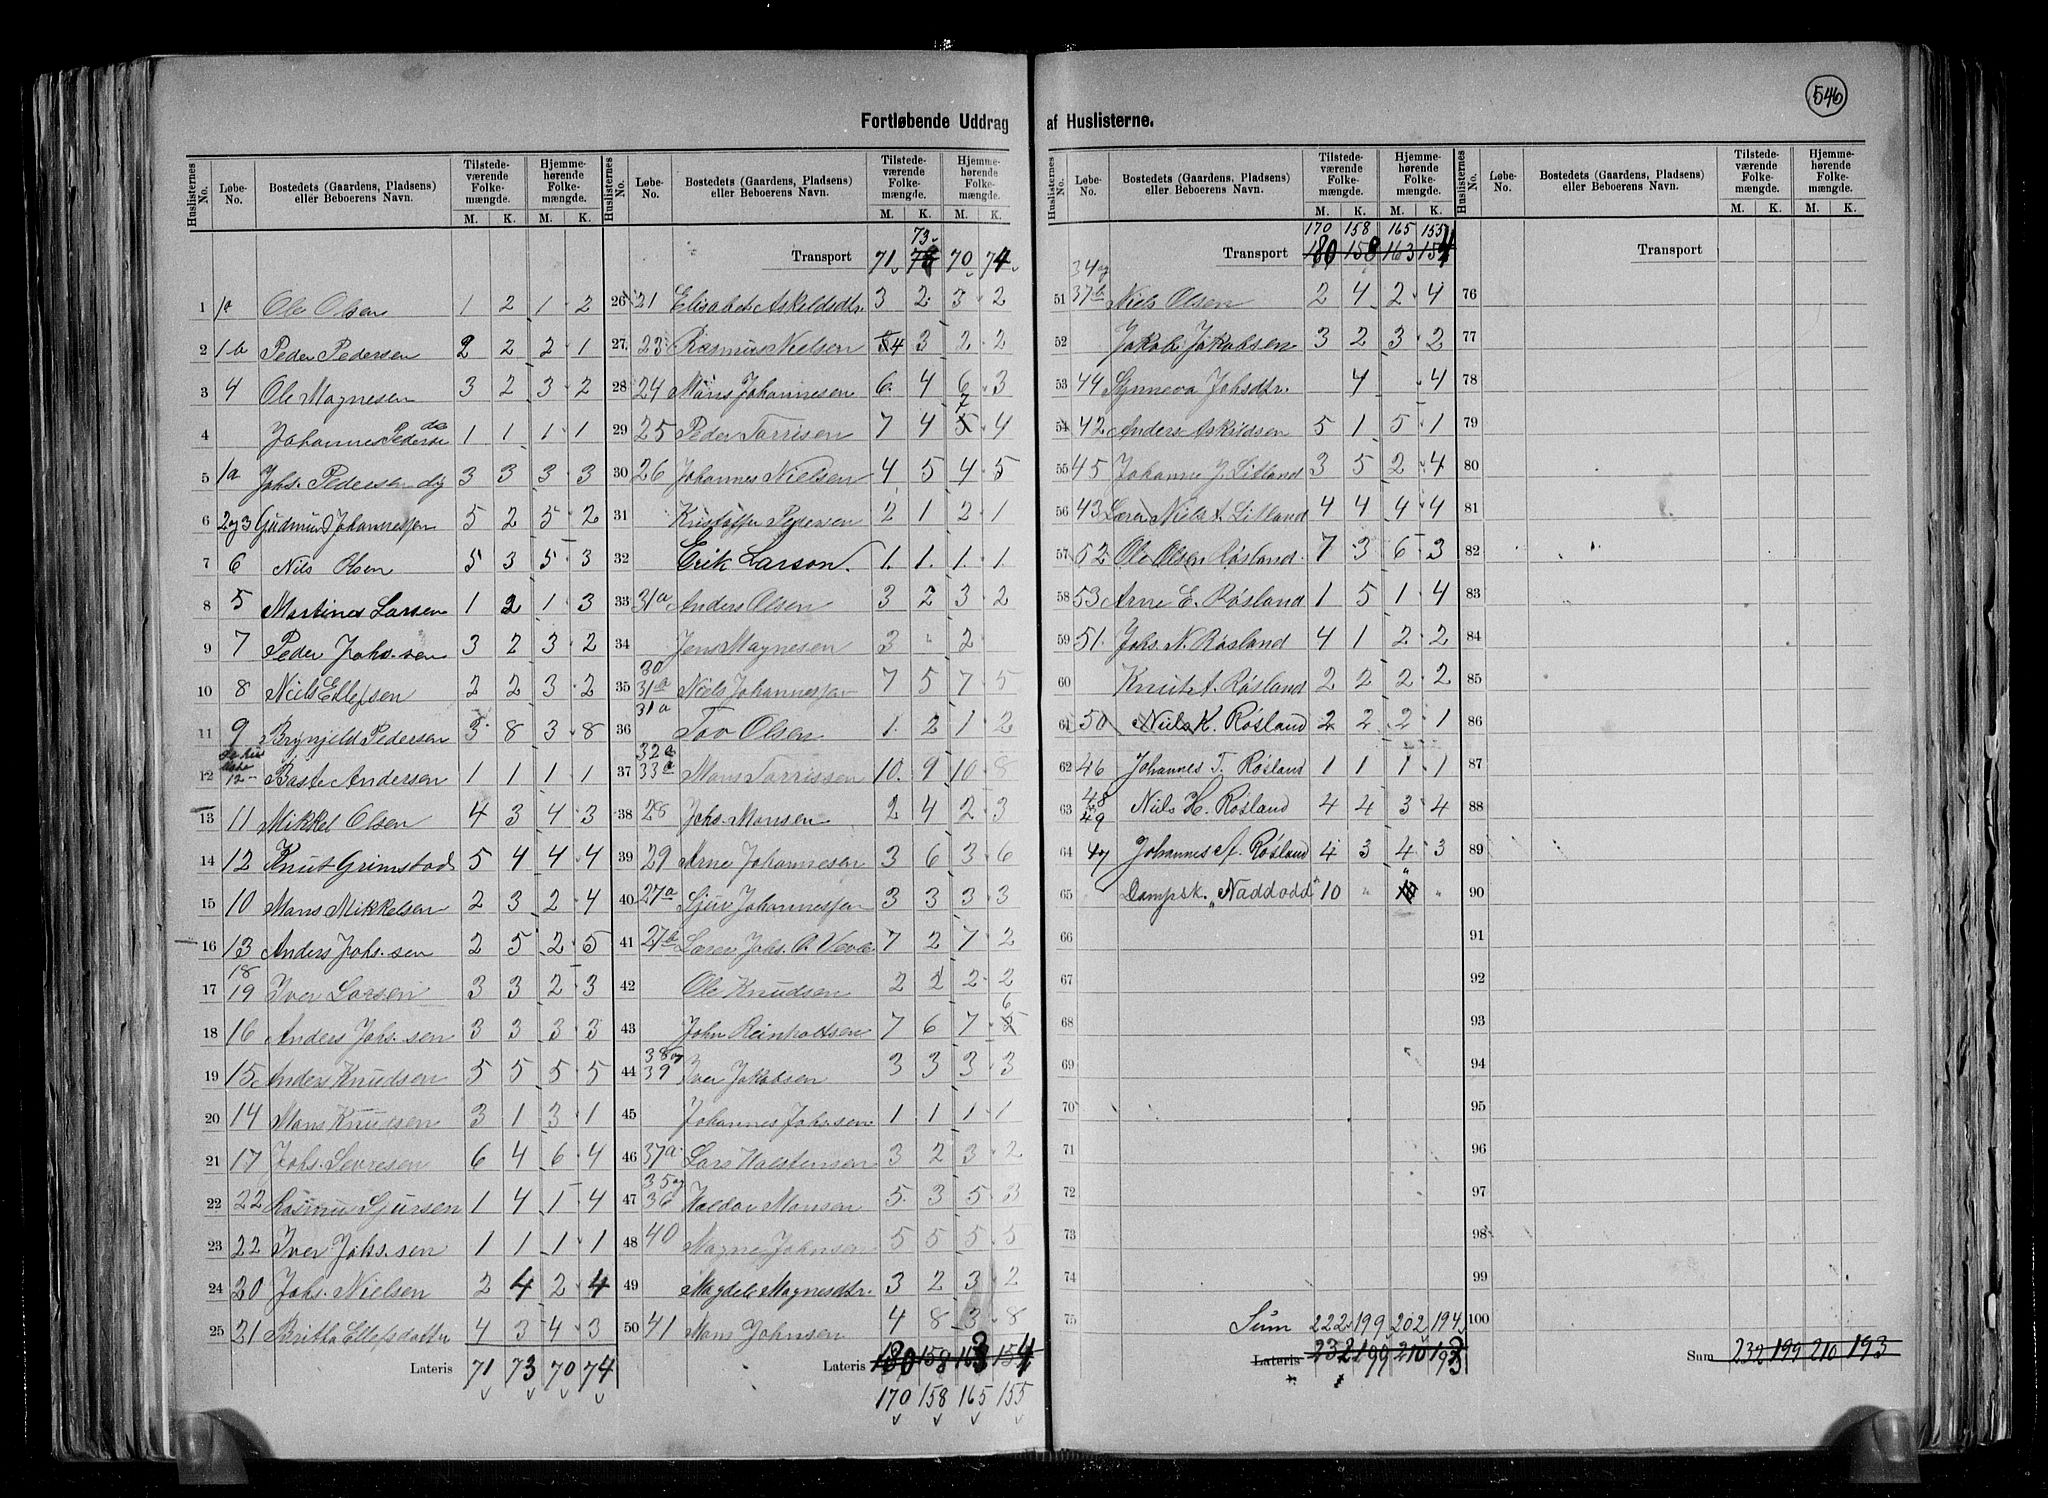 546
Fortløbende Uddrag af Huslisterne.
Huslisternes No. Løbe-No. Bostedets (Gaardens, Pladsens) eller Beboerens Navn. Tilstedeværende Folkemængde. M. K. Hjemmehørende Folkemængde. M. K.
1 1a Ole Olsen 1 2 1 2
2 1a Peder Pedersen 2 2 2 1
3 4 Ole Magnesen 3 2 3 2
4 Johannes Pederse do 1 1 1 1
5 1a Johs. Pedersen dy 3 3 3 3
6 2og3 Gudmund Johannessen 5 2 5 2
7 6 Nils Olsen 5 3 5 3
8 5 Martines Larsen 1 2 1 3
9 7 Peder Johs.sen 3 2 3 2
10 8 Niels Ellefsen 2 2 3 2
11 9 Brynjeld Pedersen 3 8 3 8
12 12 Baste Andersen 1 1 1 1
13 11 Mikkel Olsen 4 3 4 3
14 12 Knut Grimstad 5 4 4 4
15 10 Mons Mikkelsen 2 3 2 4
16 13 Anders Johs.sen 2 5 2 5
17 18 19 Iver Larsen 3 3 2 3
18 16 Anders Johs.sen 3 3 3 3
19 15 Anders Knudsen 5 5 5 5
20 14 Mons Knudsen 3 1 3 1
21 17 Johs. Sevresen 6 4 6 4
22 22 Rasmus Sjursen 1 4 1 4
23 22 Iver Johs.sen 1 1 1 1
24 20 Johs. Nielsen 2 4 2 4
25 21 Britha Ellefsdatter 4 3 4 3
Lateris 71 73 70 74
Huslisternes No. Løbe-No. Bostedets (Gaardens, Pladsens) eller Beboerens Navn. Tilstedeværende Folkemængde. M. K. Hjemmehørende Folkemængde. M. K.
73
Transport 71 70 74
26 21 Elisabet Askeldsdtr. 3 2 3 2
27 23 Rasmus Nielsen 4 3 2 2
28 24 Mons Johannesen 6 4 6 3
29 25 Peder Torrisen 7 4 7 4
30 26 Johannes Nielsen 4 5 4 5
31 Kristoffer Pedersen 2 1 2 1
32 Erik Larson. 1 1 1 1
33 31a Anders Olsen 3 2 3 2
34 Jens Magnesen 3 " 2
35 30 31a Niels Johannessen 7 5 7 5
36 31a Tov Olsen 1 2 1 2
37 32a 33a Mons Torrissen 10 9 10 8
38 28 Johs. Monsen 2 4 2 3
39 29 Arne Johannesen 3 6 3 6
40 27a Sjur Johannessen 3 3 3 3
41 27b Lærer Johs. A. Vevle 7 2 7 2
42 Ole Knudsen 2 2 2 2
43 John Reinholtsen 7 6 7 6
44 38og 39 Iver Jakobsen 3 3 3 3
45 Johannes Johs.sen 1 1 1 1
46 37a Lars Halstensen 3 2 3 2
47 35og 36 Haldor Monsen 5 3 5 3
48 40 Magne Johnsen 5 5 5 5
49 Magdele Magnesdtr. 3 2 3 2
50 41 Mons Johnsen 4 8 3 8
Lateris 180 158 163 154
170 158 165 155
Huslisternes No. Løbe-No. Bostedets (Gaardens, Pladsens) eller Beboerens Navn. Tilstedeværende Folkemængde. M. K. Hjemmehørende Folkemængde. M. K.
170 158 165 155
Transport 180 158 163 154
51 34og 37b Niels Olsen 2 4 2 4
52 Jakob Jakobsen 3 2 3 2
53 44 Synneva Johsdtr. 4 4
54 42 Anders Askildsen 5 1 5 1
55 45 Johanne J. Litland 3 5 2 4
56 43 Lærer Niels A. Litland 4 4 4 4
57 52 Ole Olsen Røsland 7 3 6 3
58 53 Arne E. Røsland 1 5 1 4
59 51 Johs. N. Røsland 4 1 2 2
60 Knut A. Røsland 2 2 2 2
61 50 Niels K. Røsland 2 2 2 1
62 46 Johannes T. Røsland 1 1 1 1
63 48 49 Niels H. Røsland 4 4 3 4
64 47 Johannes A. Røsland 4 3 4 3
65 Dampsk. "Naddodd" 10 " 10 "
66
67
68
69
70
71
72
73
74
75 Sum 222 199 202 194
Lateris 232 199 210 193
Huslisternes No. Løbe-No. Bostedets (Gaardens, Pladsens) eller Beboerens Navn. Tilstedeværende Folkemængde. M. K. Hjemmehørende Folkemængde. M. K.
Transport
76
77
78
79
80
81
82
83
84
85
86
87
88
89
90
91
92
93
94
95
96
97
98
99
100
Sum 232 199 210 193